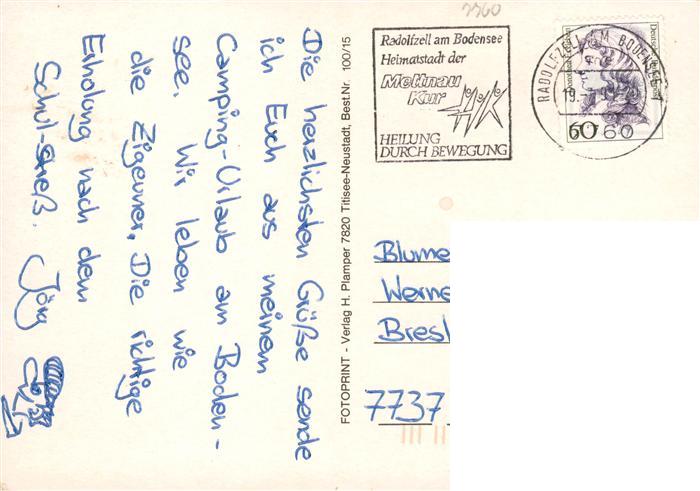 7760
Radolfzell am Bodensee
Heimatstadt der
Mettnau
Kur
HEILUNG
DURCH BEWEGUNG
RADOLFZELL AM BODENSEE 1
19.
60
60
Deutsche Bundespost
Die herzlichsten Grüße sende
ich Euch aus meinem
Camping-Urlaub am Boden-
see. Wir leben wie
die Zigeuner. Die richtige
Erholung nach dem
Schul-streß. Jörg
FOTOPRINT - Verlag H. Plamper 7820 Titisee-Neustadt, Best.Nr. 100/15
Blume
Werne
Bresl
7737